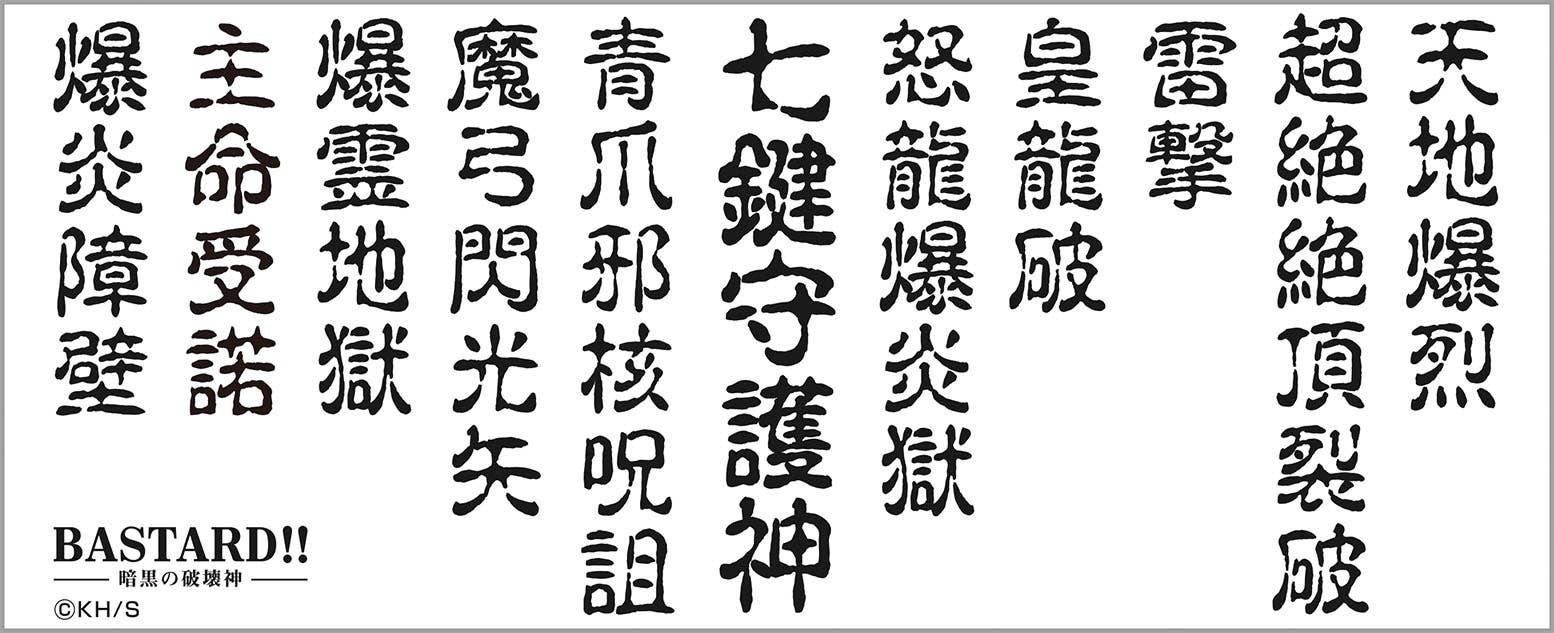 天地爆烈
超絶絶頂裂破
雷撃
皇龍破
怒龍爆炎獄
七鍵守護神
青爪邪核呪詛
魔弓閃光矢
爆霊地獄
主命受諾
爆炎障壁
BASTARD!!
暗黒の破壊神
©KH/S